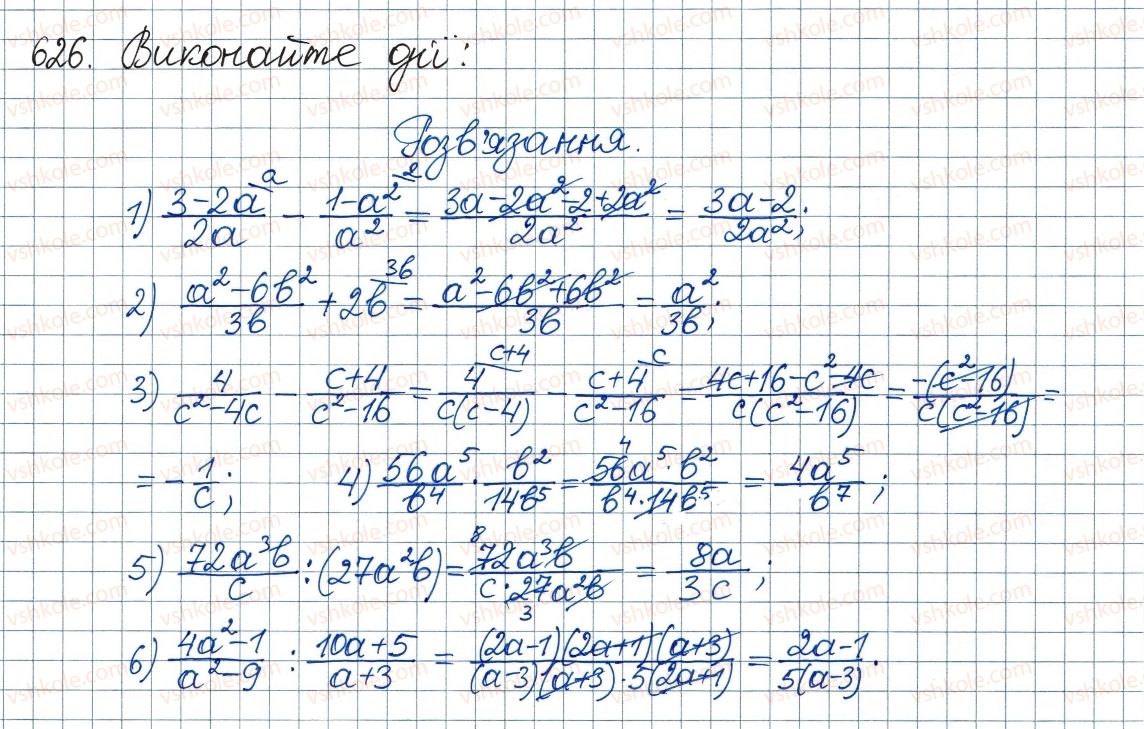 626. Виконайте дії:
Розв'язання.
1) \frac{3-2a}{2a}^{a} - \frac{1-a^2}{a^2}^{2} = \frac{3a-2a^2-2+2a^2}{2a^2} = \frac{3a-2}{2a^2};
2) \frac{a^2-6b^2}{3b} + 2b^{3b} = \frac{a^2-6b^2+6b^2}{3b} = \frac{a^2}{3b};
3) \frac{4}{c^2-4c} - \frac{c+4}{c^2-16} = \frac{4}{c(c-4)}^{c+4} - \frac{c+4}{c^2-16}^{c} = \frac{4c+16-c^2-4c}{c(c^2-16)} = \frac{-(c^2-16)}{c(c^2-16)} =
= -\frac{1}{c}; 4) \frac{56a^5}{b^4} \cdot \frac{b^2}{14b^5} = \frac{56a^5 \cdot b^2}{b^4 \cdot 14b^5} = \frac{4a^5}{b^7};
5) \frac{72a^3b}{c} : (27a^2b) = \frac{72a^3b}{c \cdot 27a^2b} = \frac{8a}{3c};
6) \frac{4a^2-1}{a^2-9} : \frac{10a+5}{a+3} = \frac{(2a-1)(2a+1)(a+3)}{(a-3)(a+3) \cdot 5(2a+1)} = \frac{2a-1}{5(a-3)}.